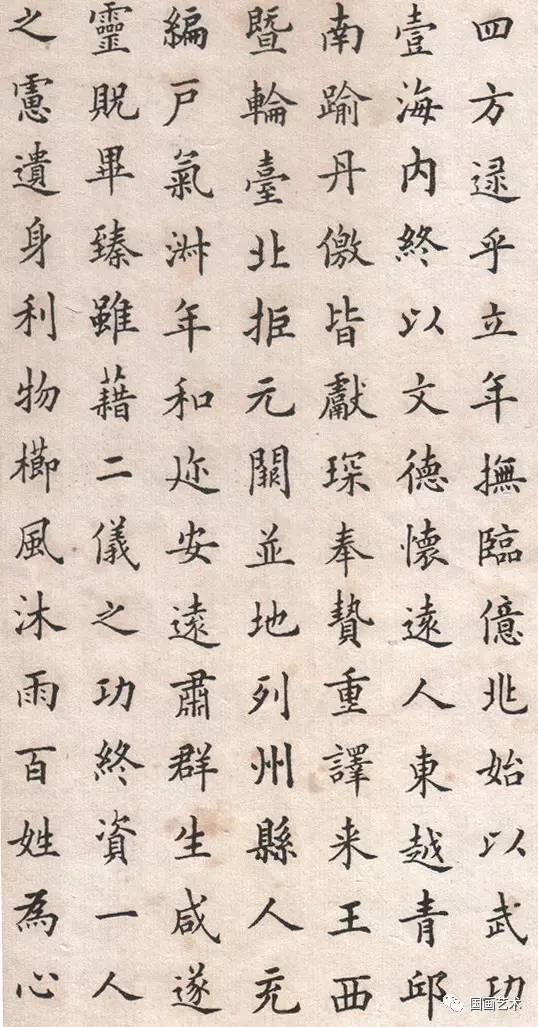 四方逯乎立年撫臨億兆始以武功
壹海內終以文德懷遠人東越青邱
南踰丹儌皆獻琛奉贄重譯来王西
暨輪臺北拒元闕並地列州縣人充
編戶氣淋年和迩安遠肅群生咸遂
靈貺畢臻雖藉二儀之功終資一人
之慮遺身利物櫛風沐雨百姓為心
国画艺术